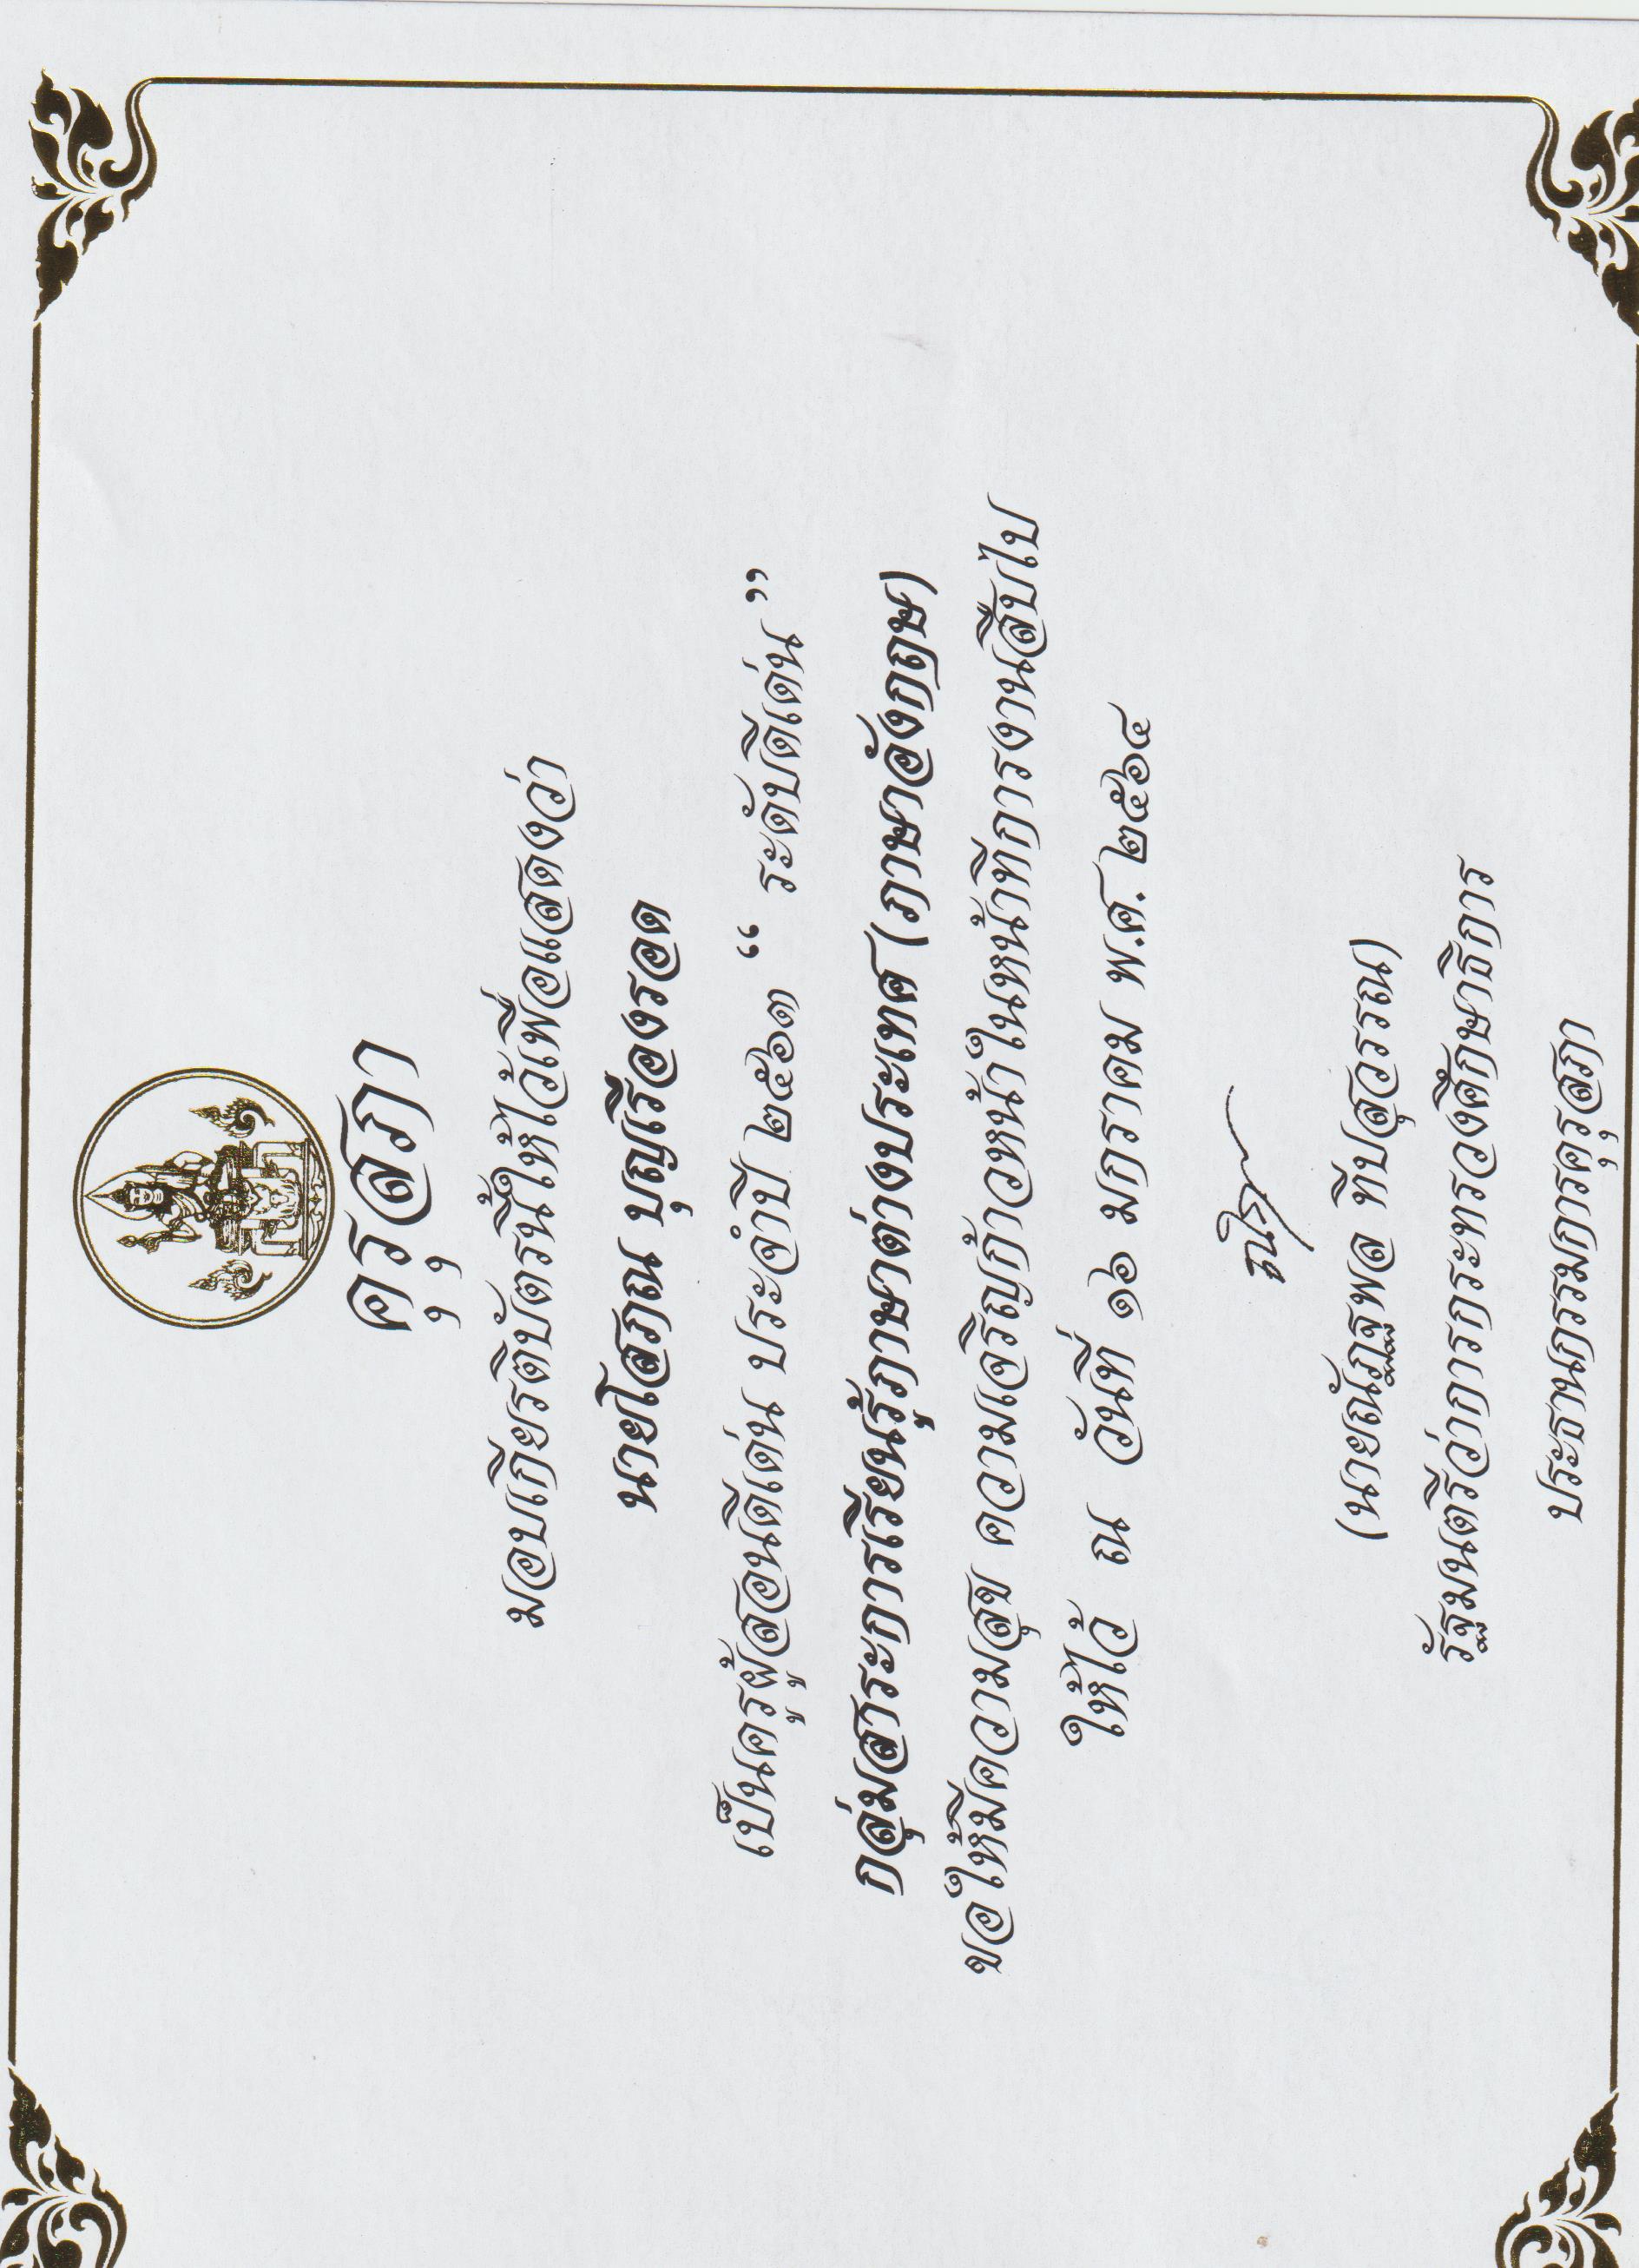 คุรุสภา
มอบเกียรติบัตรนี้ให้ไว้เพื่อแสดงว่า
นายโสภณ บุญเรืองรอด
เป็นครูผู้สอนดีเด่น ประจำปี ๒๕๖๓ “ ระดับดีเด่น ”
กลุ่มสาระการเรียนรู้ภาษาต่างประเทศ (ภาษาอังกฤษ)
ขอให้มีความสุข ความเจริญก้าวหน้าในหน้าที่การงานสืบไป
ให้ไว้ ณ วันที่ ๑๖ มกราคม พ.ศ. ๒๕๖๔
(นายณัฏฐพล ทีปสุวรรณ)
รัฐมนตรีว่าการกระทรวงศึกษาธิการ
ประธานกรรมการคุรุสภา